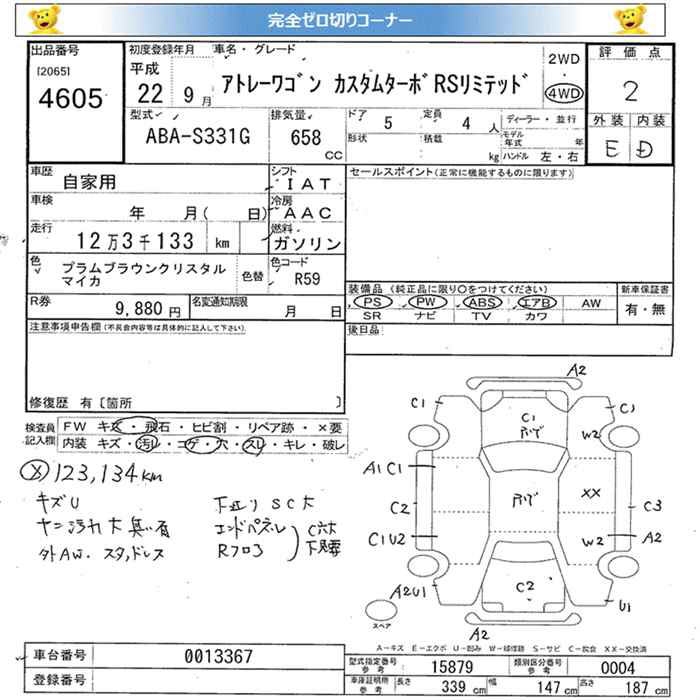 完全ゼロ切りコーナー
出品番号
[2065]
4605
初度登録年月
車名・グレード
平成
22 9月
アトレーワゴン カスタムターボRSリミテッド
2WD
4WD
評価点
2
外装 内装
E D
型式
ABA-S331G
排気量
658
CC
ドア 5
定員 4 人
形状
積載 kg
ディーラー・並行
モデル年式 年
ハンドル 左・右
車歴
自家用
シフト
IAT
セールスポイント(正常に機能するものに限ります)
車検
年 月( 日)
冷房
AAC
走行
12万3千133 km
燃料
ガソリン
色
プラムブラウンクリスタル
マイカ
色替
色コード
R59
装備品 (純正品に限り○をつけてください)
新車保証書
PS PW ABS エアB AW
有・無
SR ナビ TV カワ
R券
9,880 円
名変通知期限
月 日
後日品
注意事項申告欄(不具合内容等は具体的に記入して下さい)
修復歴 有〔箇所 〕
検査員
記入欄
FW キズ・飛石・ヒビ割・リペア跡・×要
内装 キズ・汚レ・コゲ・穴・スレ・キレ・破レ
Ⓧ123,134km
キズU
ヤニ汚れ大 臭い有
外AW. スタッドレス
下廻り SC大
エンドパネル
Rフロア
C穴大
A2
C1
C1
C1
W2
A1 C1
XX
C2
C3
C1U2
W2
A2
A2U1
C2
U1
A2
スペア
A-キズ E-エクボ U-凹み W-補修跡 S-サビ C-腐食 XX-交換済
車台番号
0013367
登録番号
型式指定番号
参考
15879
類別区分番号
参考
0004
車庫証明用
参考
長さ 339 cm
幅 147 cm
高さ 187 cm